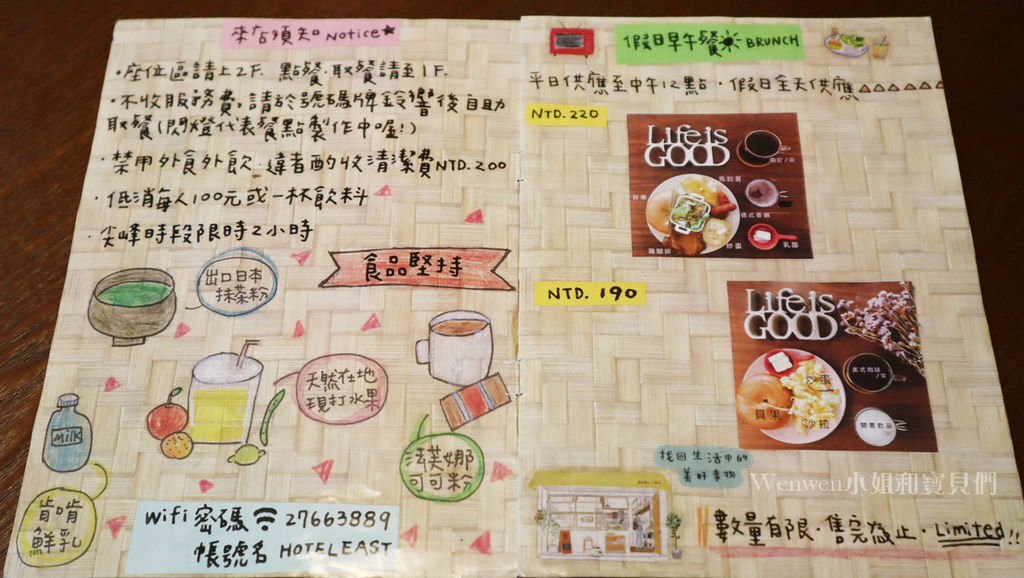 來店須知 Notice
・座位區請上2F. 點餐.取餐請至1F.
・不收服務費,請於號碼牌鈴響後自助
取餐(閃燈代表餐點製作中喔!)
・禁用外食外飲.違者酌收清潔費NTD.200
・低消每人100元或一杯飲料
・尖峰時段限時2小時
食品堅持
出口日本
抹茶粉
天然在地
現打水果
MILK
法芙娜
可可粉
肯啃
鮮乳
Wifi密碼 27663889
帳號名 HOTELEAST
假日早午餐 BRUNCH
平日供應至中午12點.假日全天供應
NTD.220
Life is
GOOD
馬鈴薯
貝果
德式香腸
雞腿排
炒蛋
乳酪
NTD.190
Life is
GOOD
美式咖啡
/茶
炒蛋
貝果
沙拉
開胃飲品
找回生活中的
美好事物
Wenwen小姐和寶貝們
數量有限.售完為止.Limited!!